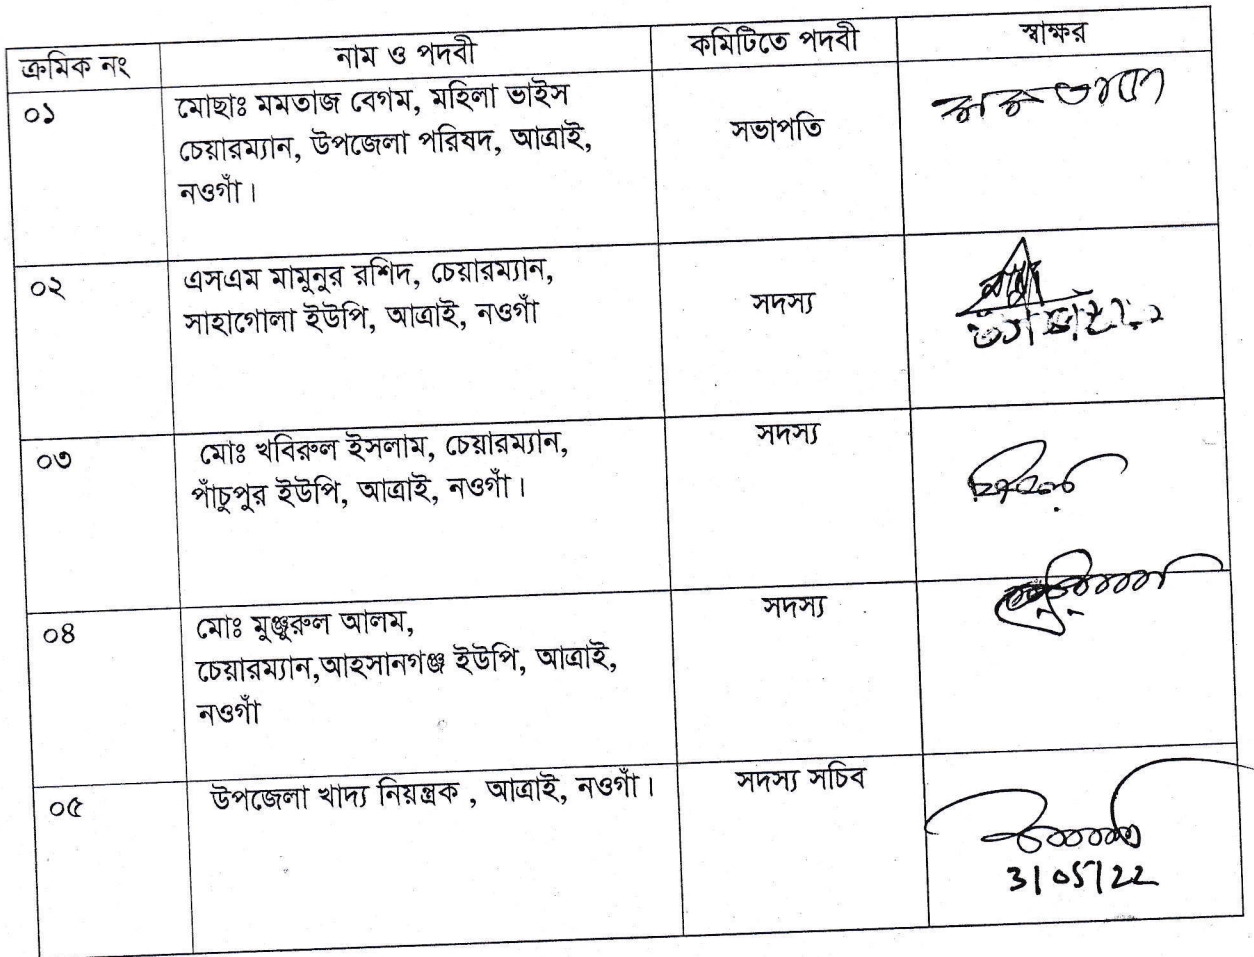 ক্রমিক নং নাম ও পদবী কমিটিতে পদবী স্বাক্ষর
০১ মোছাঃ মমতাজ বেগম, মহিলা ভাইস
চেয়ারম্যান, উপজেলা পরিষদ, আত্রাই,
নওগাঁ।
সভাপতি
০২ এসএম মামুনুর রশিদ, চেয়ারম্যান,
সাহাগোলা ইউপি, আত্রাই, নওগাঁ
সদস্য
০৩ মোঃ খবিরুল ইসলাম, চেয়ারম্যান,
পাঁচুপুর ইউপি, আত্রাই, নওগাঁ।
সদস্য
০৪ মোঃ মুঞ্জুরুল আলম,
চেয়ারম্যান,আহসানগঞ্জ ইউপি, আত্রাই,
নওগাঁ
সদস্য
০৫ উপজেলা খাদ্য নিয়ন্ত্রক , আত্রাই, নওগাঁ।
সদস্য সচিব
3/05/22